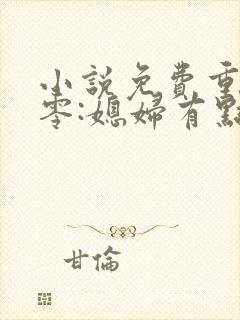 小說免費重
零:媳婦有點
甘倫